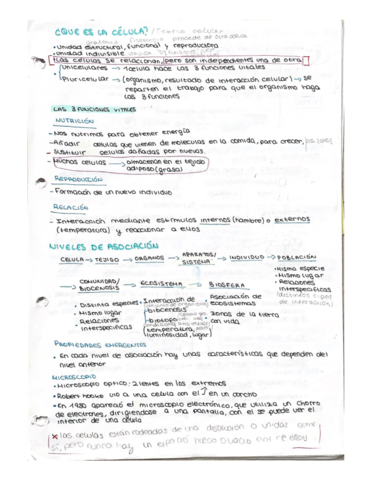 ¿QUE ES LA CÉLULA? / Teoría celular
procede de otra célula
• Unidad estructural, funcional y reproductora
• Unidad indivisible
• Las células se relacionan pero son independientes una de otra
Unicelulares → 1 célula hace las 3 funciones vitales
Pluricelular → (organismo, resultado de interacción celular) → se
reparten el trabajo para que el organismo haga
las 3 funciones
LAS 3 FUNCIONES VITALES
NUTRICIÓN
- Nos nutrimos para obtener energía
- Añadir células que vienen de moléculas en la comida, para crecer,
- Sustituir células dañadas por nuevas.
- Muchos células → almacenan en el tejido
adiposo (grasa)
REPRODUCCIÓN
- Formación de un nuevo individuo
RELACIÓN
- Interacción mediante estímulos internos (hambre) o externos
(temperatura) y reaccionar a ellos
NIVELES DE ASOCIACIÓN
CÉLULA → TEJIDO → ÓRGANOS → APARATOS/SISTEMA → INDIVIDUO → POBLACIÓN
• Misma especie
• Mismo lugar
• Relaciones
interespecíficas
(distintos tipos
de interacción)
→ COMUNIDAD/BIOCENOSIS → ECOSISTEMA → BIOSFERA
• Distinta especies
• Mismo lugar
• Relaciones
interespecíficas
• Interacción de
biocenosis
• biotopo
(temperatura,
luminosidad, lugar)
• Asociación de
ecosistemas
• Zonas de la tierra
con vida
PROPIEDADES EMERGENTES
• En cada nivel de asociación hay unas características que dependen del
nivel anterior
MICROSCOPIO
• Microscopio óptico: 2 lentes en los extremos
• Robert hooke vio a una célula con el en un corcho
• En 1930 apareció el microscopio electrónico, que utiliza un chorro
de electrones, dirigiéndose a una pantalla, con el se puede ver el
interior de una célula
x las células están rodeadas de una disolución
sí, pero nunca hay un